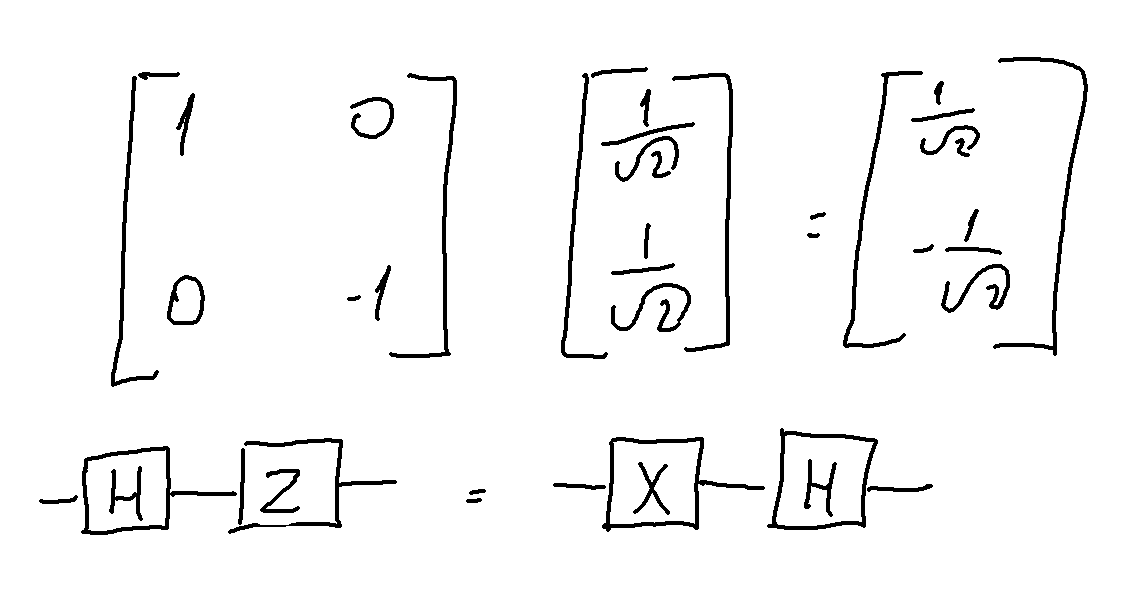 [1 0; 0 -1] [1/√2; 1/√2] = [1/√2; -1/√2]
H Z = X H